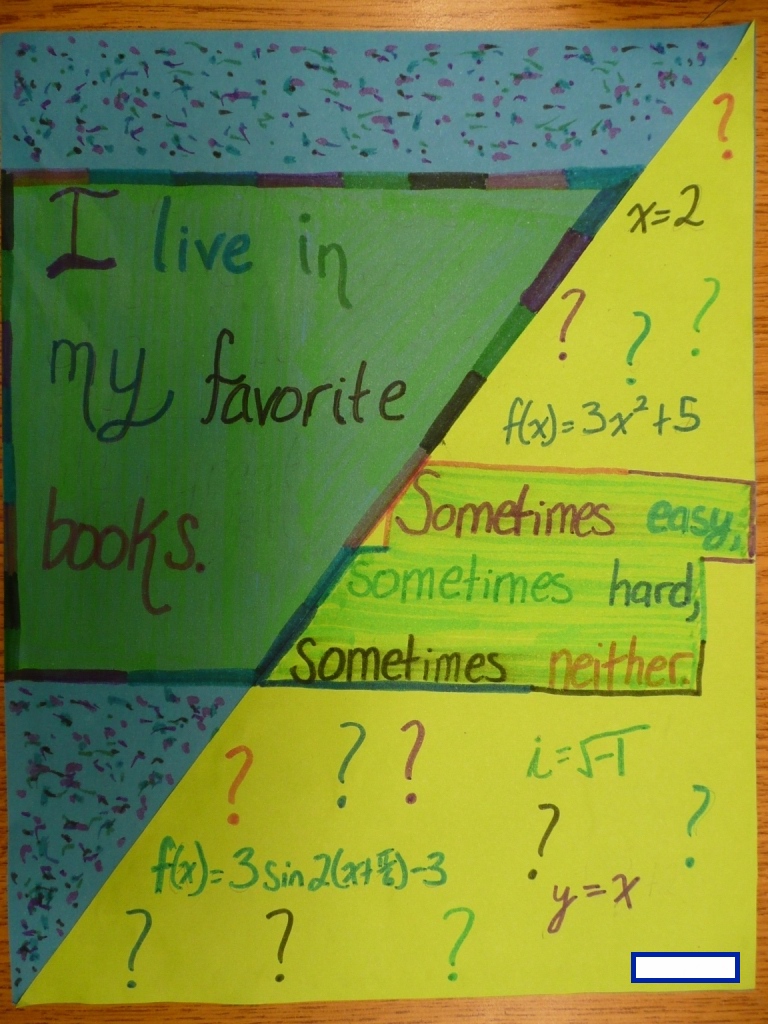 I live in
my favorite
books.
?
x=2
? ? ?
f(x)=3x²+5
Sometimes easy;
Sometimes hard,
Sometimes neither.
? ? ?
i=√-1
? ?
f(x)=3sin2(x+π/2)-3
y=x
? ? ?